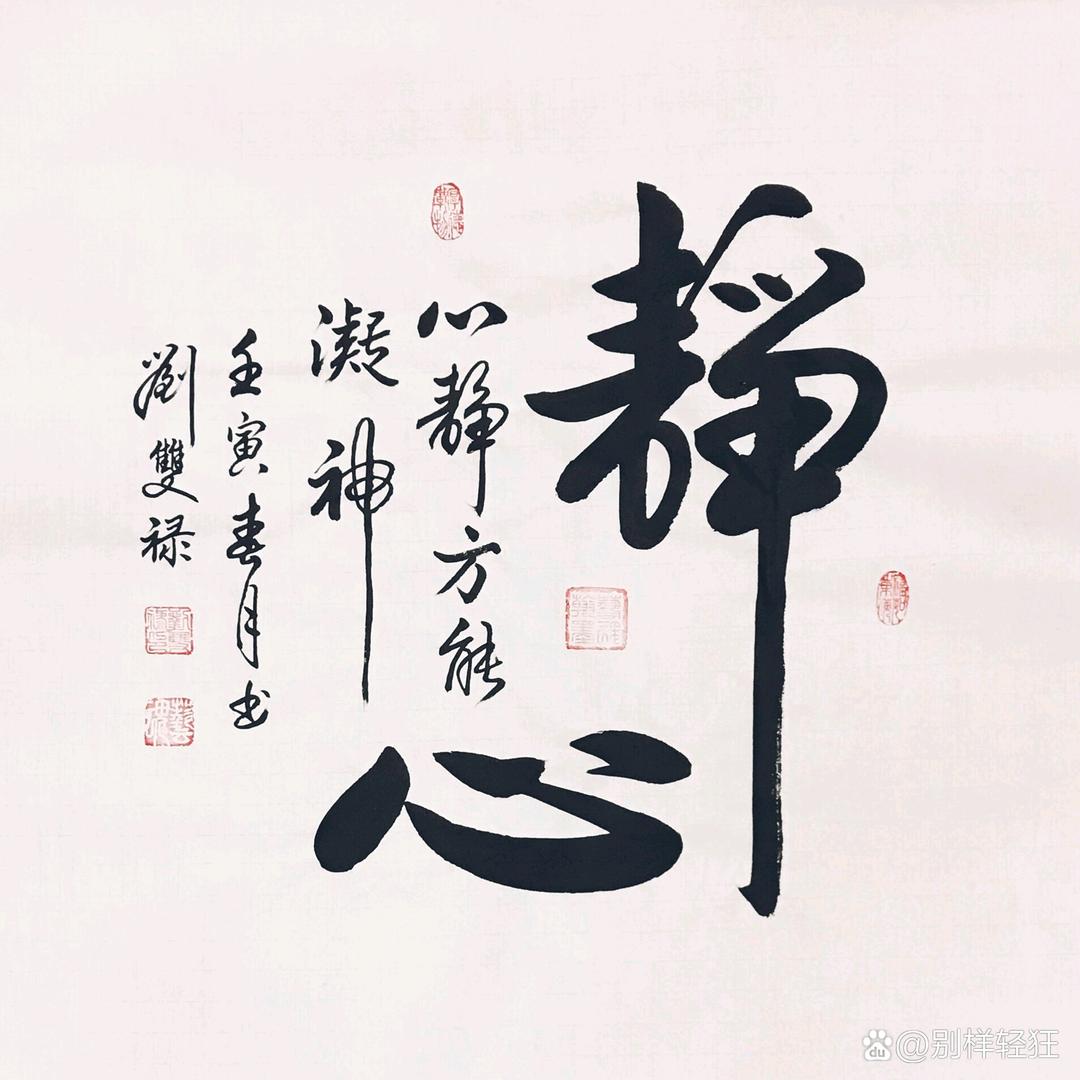 靜心
心静方能
凝神
壬寅春月书
劉雙禄
@别样轻狂